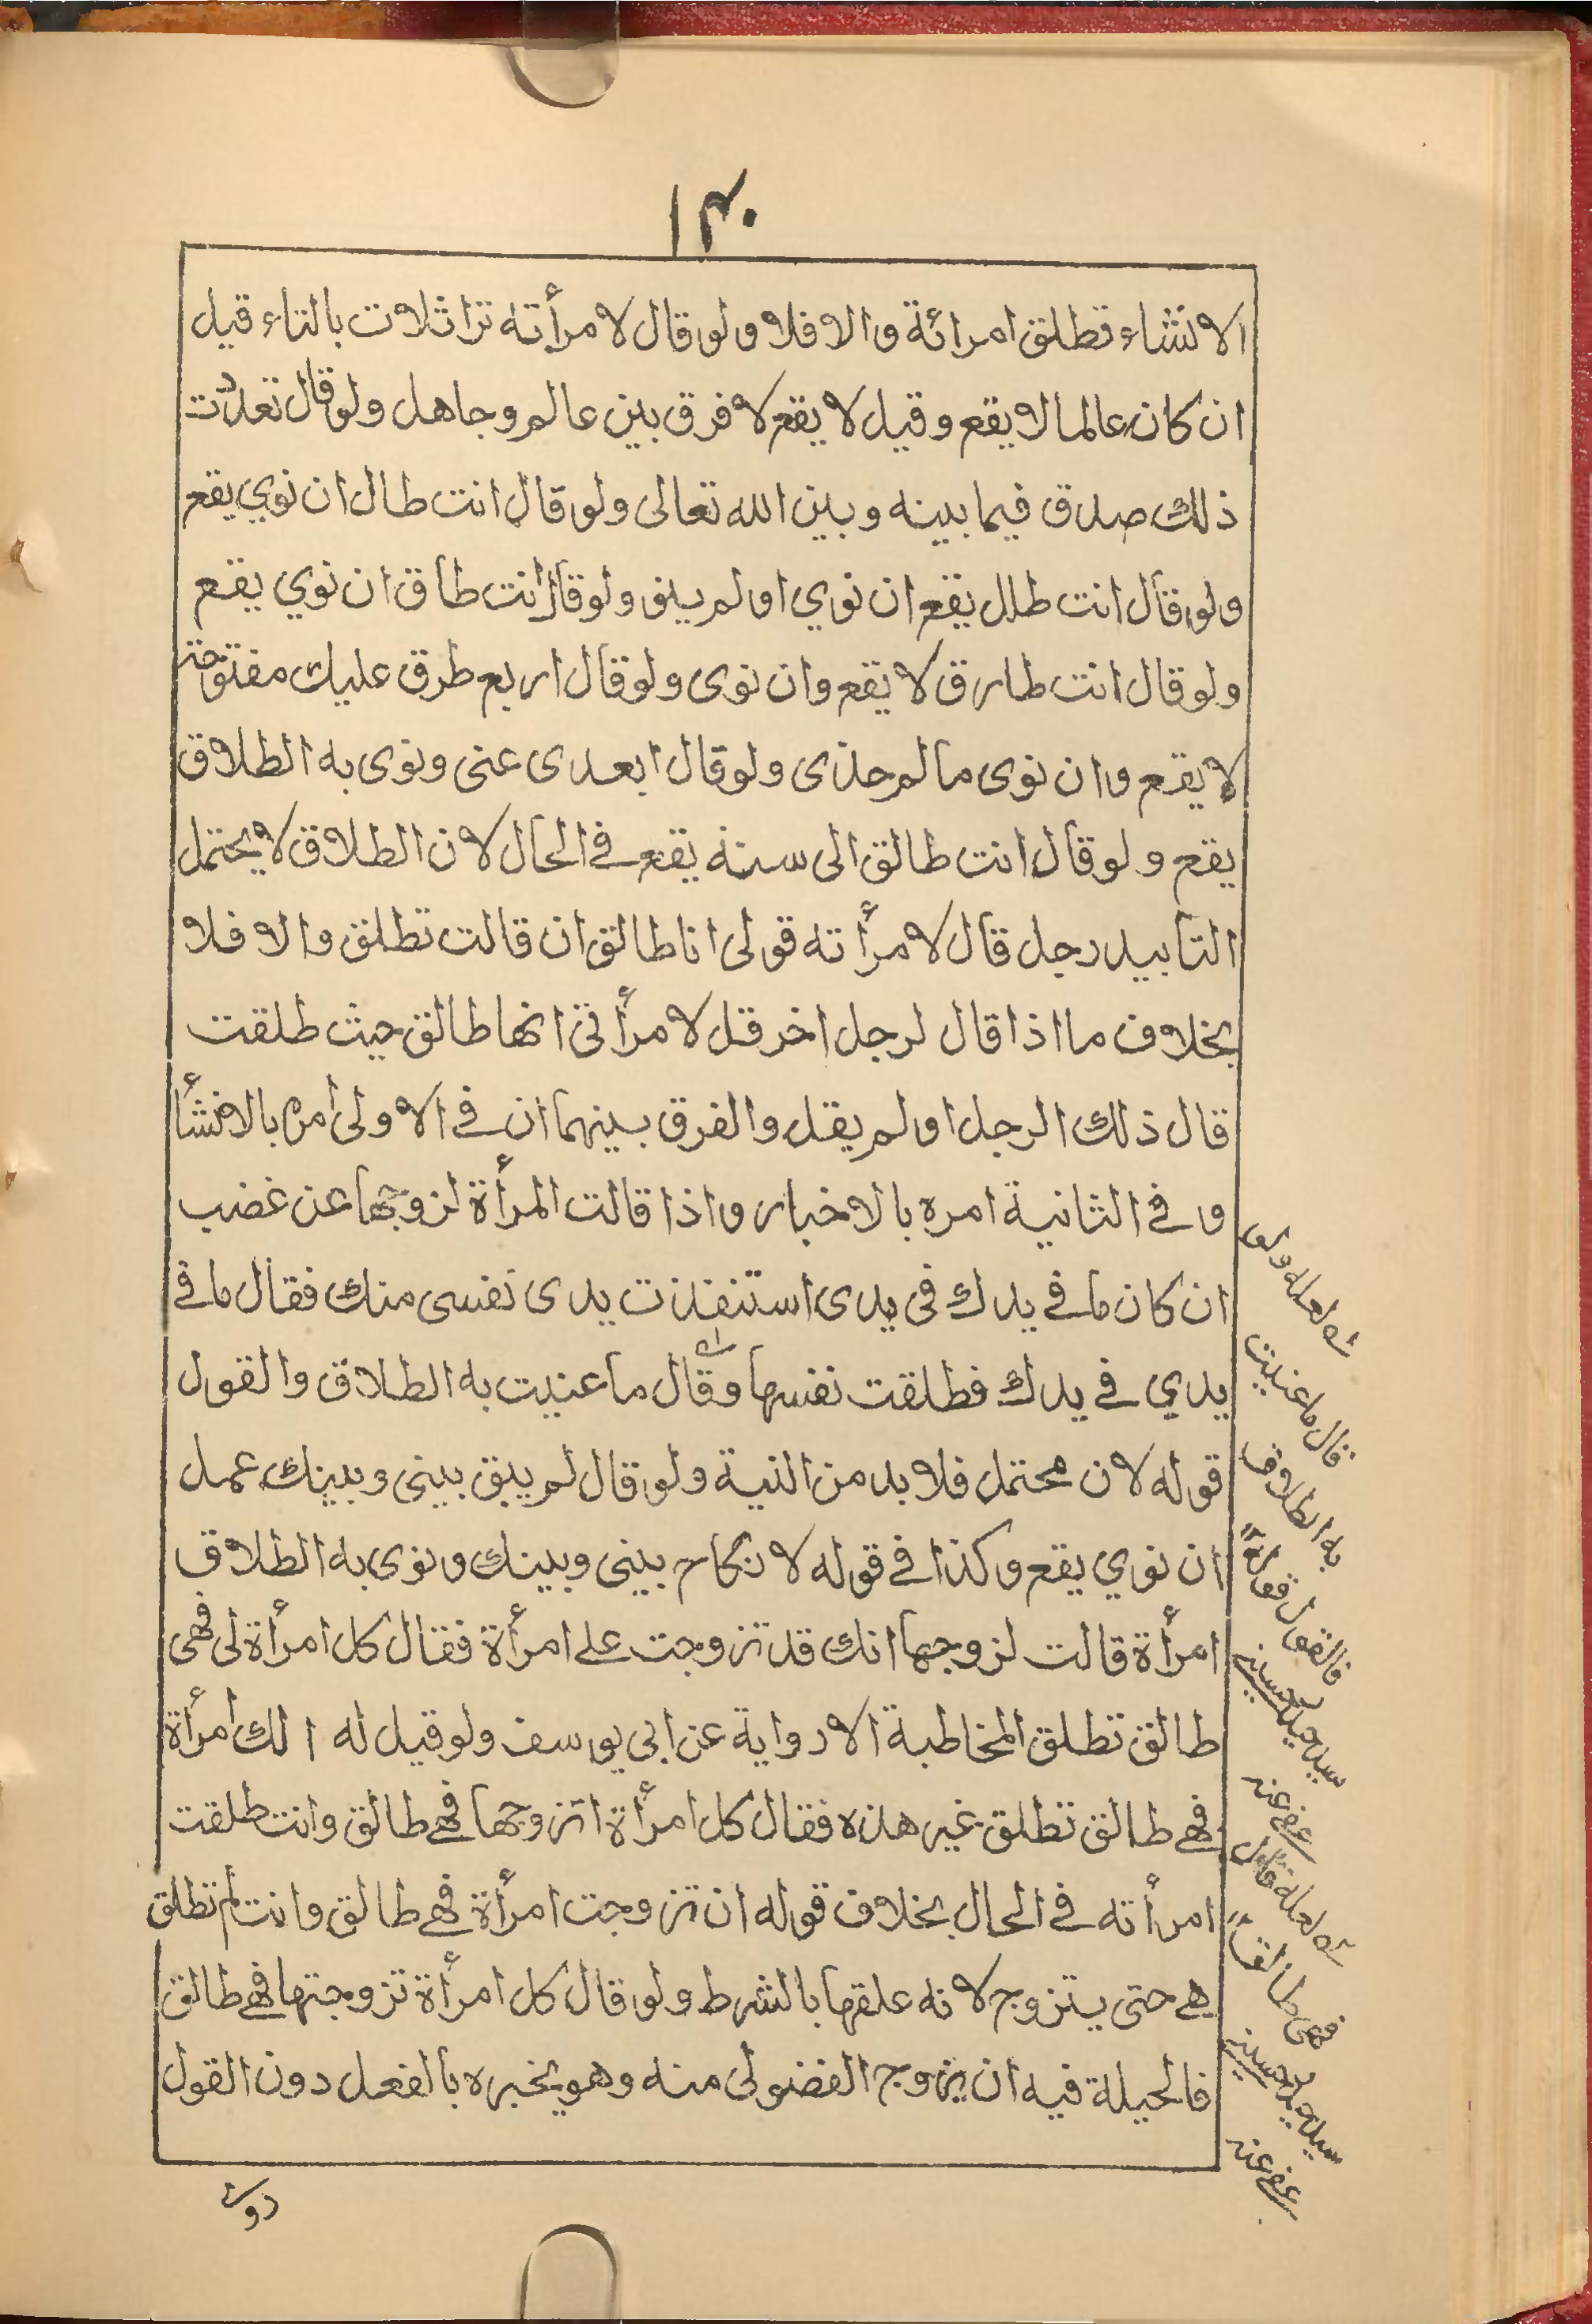 ١٣٠
الانشاء تطلق امرائة والا فلا ولو قال لامرأته ترا ثلات بالتاء قيل
ان كان عالما لا يقع وقيل لا يقع لا فرق بين عالم وجاهل ولو قال تعددت
ذلك صدق فيما بينه وبين الله تعالى ولو قال انت طال ان نوي يقع
ولو قال انت طلال يقع ان نوي او لم ينو ولو قال انت طاق ان نوي يقع
ولو قال انت طارق لا يقع وان نوى ولو قال اربع طرق عليك مفتوحة
لا يقع وان نوى مالم حذى ولو قال ابعدى عنى ونوى به الطلاق
يقع ولو قال انت طالق الى سنة يقع في الحال لان الطلاق لا يحتمل
التأبيد رجل قال لامرأته قولى انا طالق ان قالت تطلق والا فلا
بخلاف ما اذا قال لرجل اخر قل لامرأتى انها طالق حيث طلقت
قال ذلك الرجل او لم يقل والفرق بينهما ان في الاولى أمره بالانشأ
و في الثانية امره بالاخبار واذا قالت المرأة لزوجها عن غضب
ان كان ما في يدك فى يدى استنفذت يدى نفسى منك فقال ما في
يدي في يدك فطلقت نفسها وقال ما عنيت به الطلاق والقول
قوله لان محتمل فلا بد من النية ولو قال لم يبق بينى وبينك عمل
ان نوي يقع وكذا في قوله لا نكاح بينى وبينك ونوى به الطلاق
امرأة قالت لزوجها انك قد تزوجت على امرأة فقال كل امرأة لى فهى
طالق تطلق المخاطبة الا رواية عن ابى يوسف ولو قيل له الك امرأة
فهى طالق تطلق غير هذه فقال كل امرأة اتزوجها فهى طالق وانت طلقت
امرأته في الحال بخلاف قوله ان تزوجت امرأة فهى طالق وانت لم تطلق
هى حتى يتزوج لانه علقها بالشرط ولو قال كل امرأة تزوجتها فهى طالق
فالحيلة فيه ان يزوج الفضولى منه وهو يخبره بالفعل دون القول
لعله ولو
قال ما عنيت
به الطلاق
فالقول قوله
سيد حيدر حسينى
عفى عنه
لعله قال
فهى طالق
سيد حيدر حسينى
عفى عنه